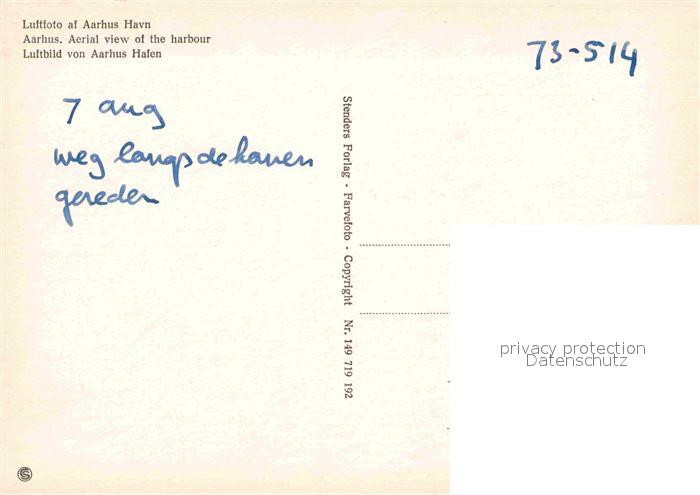 Luftfoto af Aarhus Havn
Aarhus. Aerial view of the harbour
Luftbild von Aarhus Hafen
73-514
7 aug
weg langs de haven
gereden
Stenders Forlag · Farvefoto · Copyright Nr. 149 719 192
privacy protection
Datenschutz